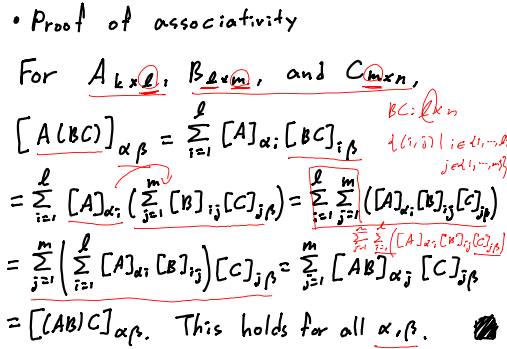 • Proof of associativity
For A_{k×l}, B_{l×m}, and C_{m×n},
[A(BC)]_{αβ} = Σ_{i=1}^{l} [A]_{αi} [BC]_{iβ}
BC: l×n
{(i,j) | i∈{1,…,l}
j∈{1,…,m}}
= Σ_{i=1}^{l} [A]_{αi} (Σ_{j=1}^{m} [B]_{ij} [C]_{jβ}) = Σ_{i=1}^{l} Σ_{j=1}^{m} ([A]_{αi} [B]_{ij} [C]_{jβ})
Σ_{j=1}^{m} Σ_{i=1}^{l} ([A]_{αi} [B]_{ij} [C]_{jβ})
= Σ_{j=1}^{m} (Σ_{i=1}^{l} [A]_{αi} [B]_{ij}) [C]_{jβ} = Σ_{j=1}^{m} [AB]_{αj} [C]_{jβ}
= [(AB)C]_{αβ}. This holds for all α,β. ■